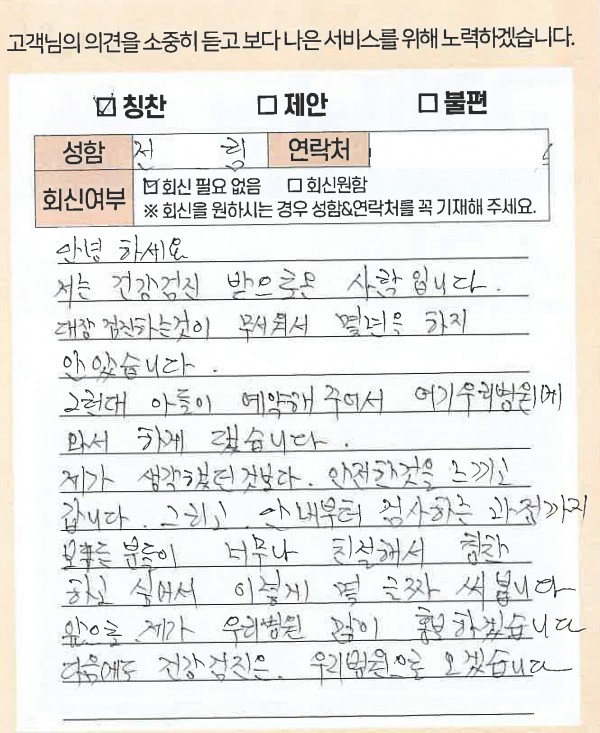 고객님의 의견을 소중히 듣고 보다 나은 서비스를 위해 노력하겠습니다.
☑ 칭찬 ☐ 제안 ☐ 불편
성함 전 림 연락처
회신여부 ☑ 회신 필요 없음 ☐ 회신원함
※ 회신을 원하시는 경우 성함&연락처를 꼭 기재해 주세요.
안녕 하세요
저는 건강검진 받으로온 사람 입니다.
대장 검진하는것이 무서워서 몇년을 하지
안았습니다.
그런대 아들이 예약해 주어서 여기우리병원에
와서 하게 됐습니다.
제가 생각했던것보다. 안전한것을 느끼고
갑니다. 그리고. 안내부터 검사하는 과정까지
모든 분들이 너무나 친절해서 칭찬
하고 싶어서 이렇게 몇 글짜 써봅니다
앞으를 제가 우리병원 많이 홍보하겠습니다
다음에도 건강검진은. 우리병원으로 오겠습니다